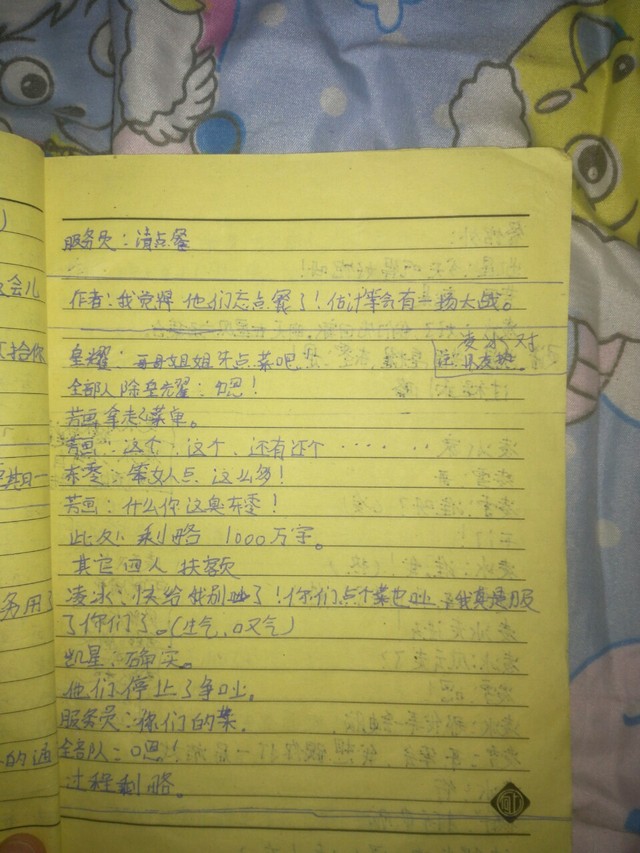 服务员：请点餐
作者：我觉得他们忘点餐了！估计等会有一场大战。
皇耀：哥哥姐姐先点菜吧！
注：
全部人除皇耀：嗯！
芳画拿走了菜单。
芳画：这个，这个，还有这个……
东零：笨女人点这么多！
芳画：什么你这臭东零！
此处剩略1000万字。
其它四人扶额
凌冰：快给我别吵了！你们点个菜也吵，我真是服
了你们了。(生气，叹气)
凯星：确实。
他们停止了争吵。
服务员：你们的菜，
全部队：嗯！
过程剩略。
会儿
给你
务用了
的通